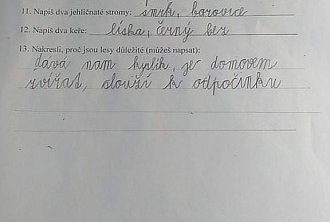 11. Napiš dva jehličnaté stromy: smrk, borovice
12. Napiš dva keře: líska, černý bez
13. Nakresli, proč jsou lesy důležité (můžeš napsat):
dává nam kyslík, je domovem
zvířat, slouží k odpočinku